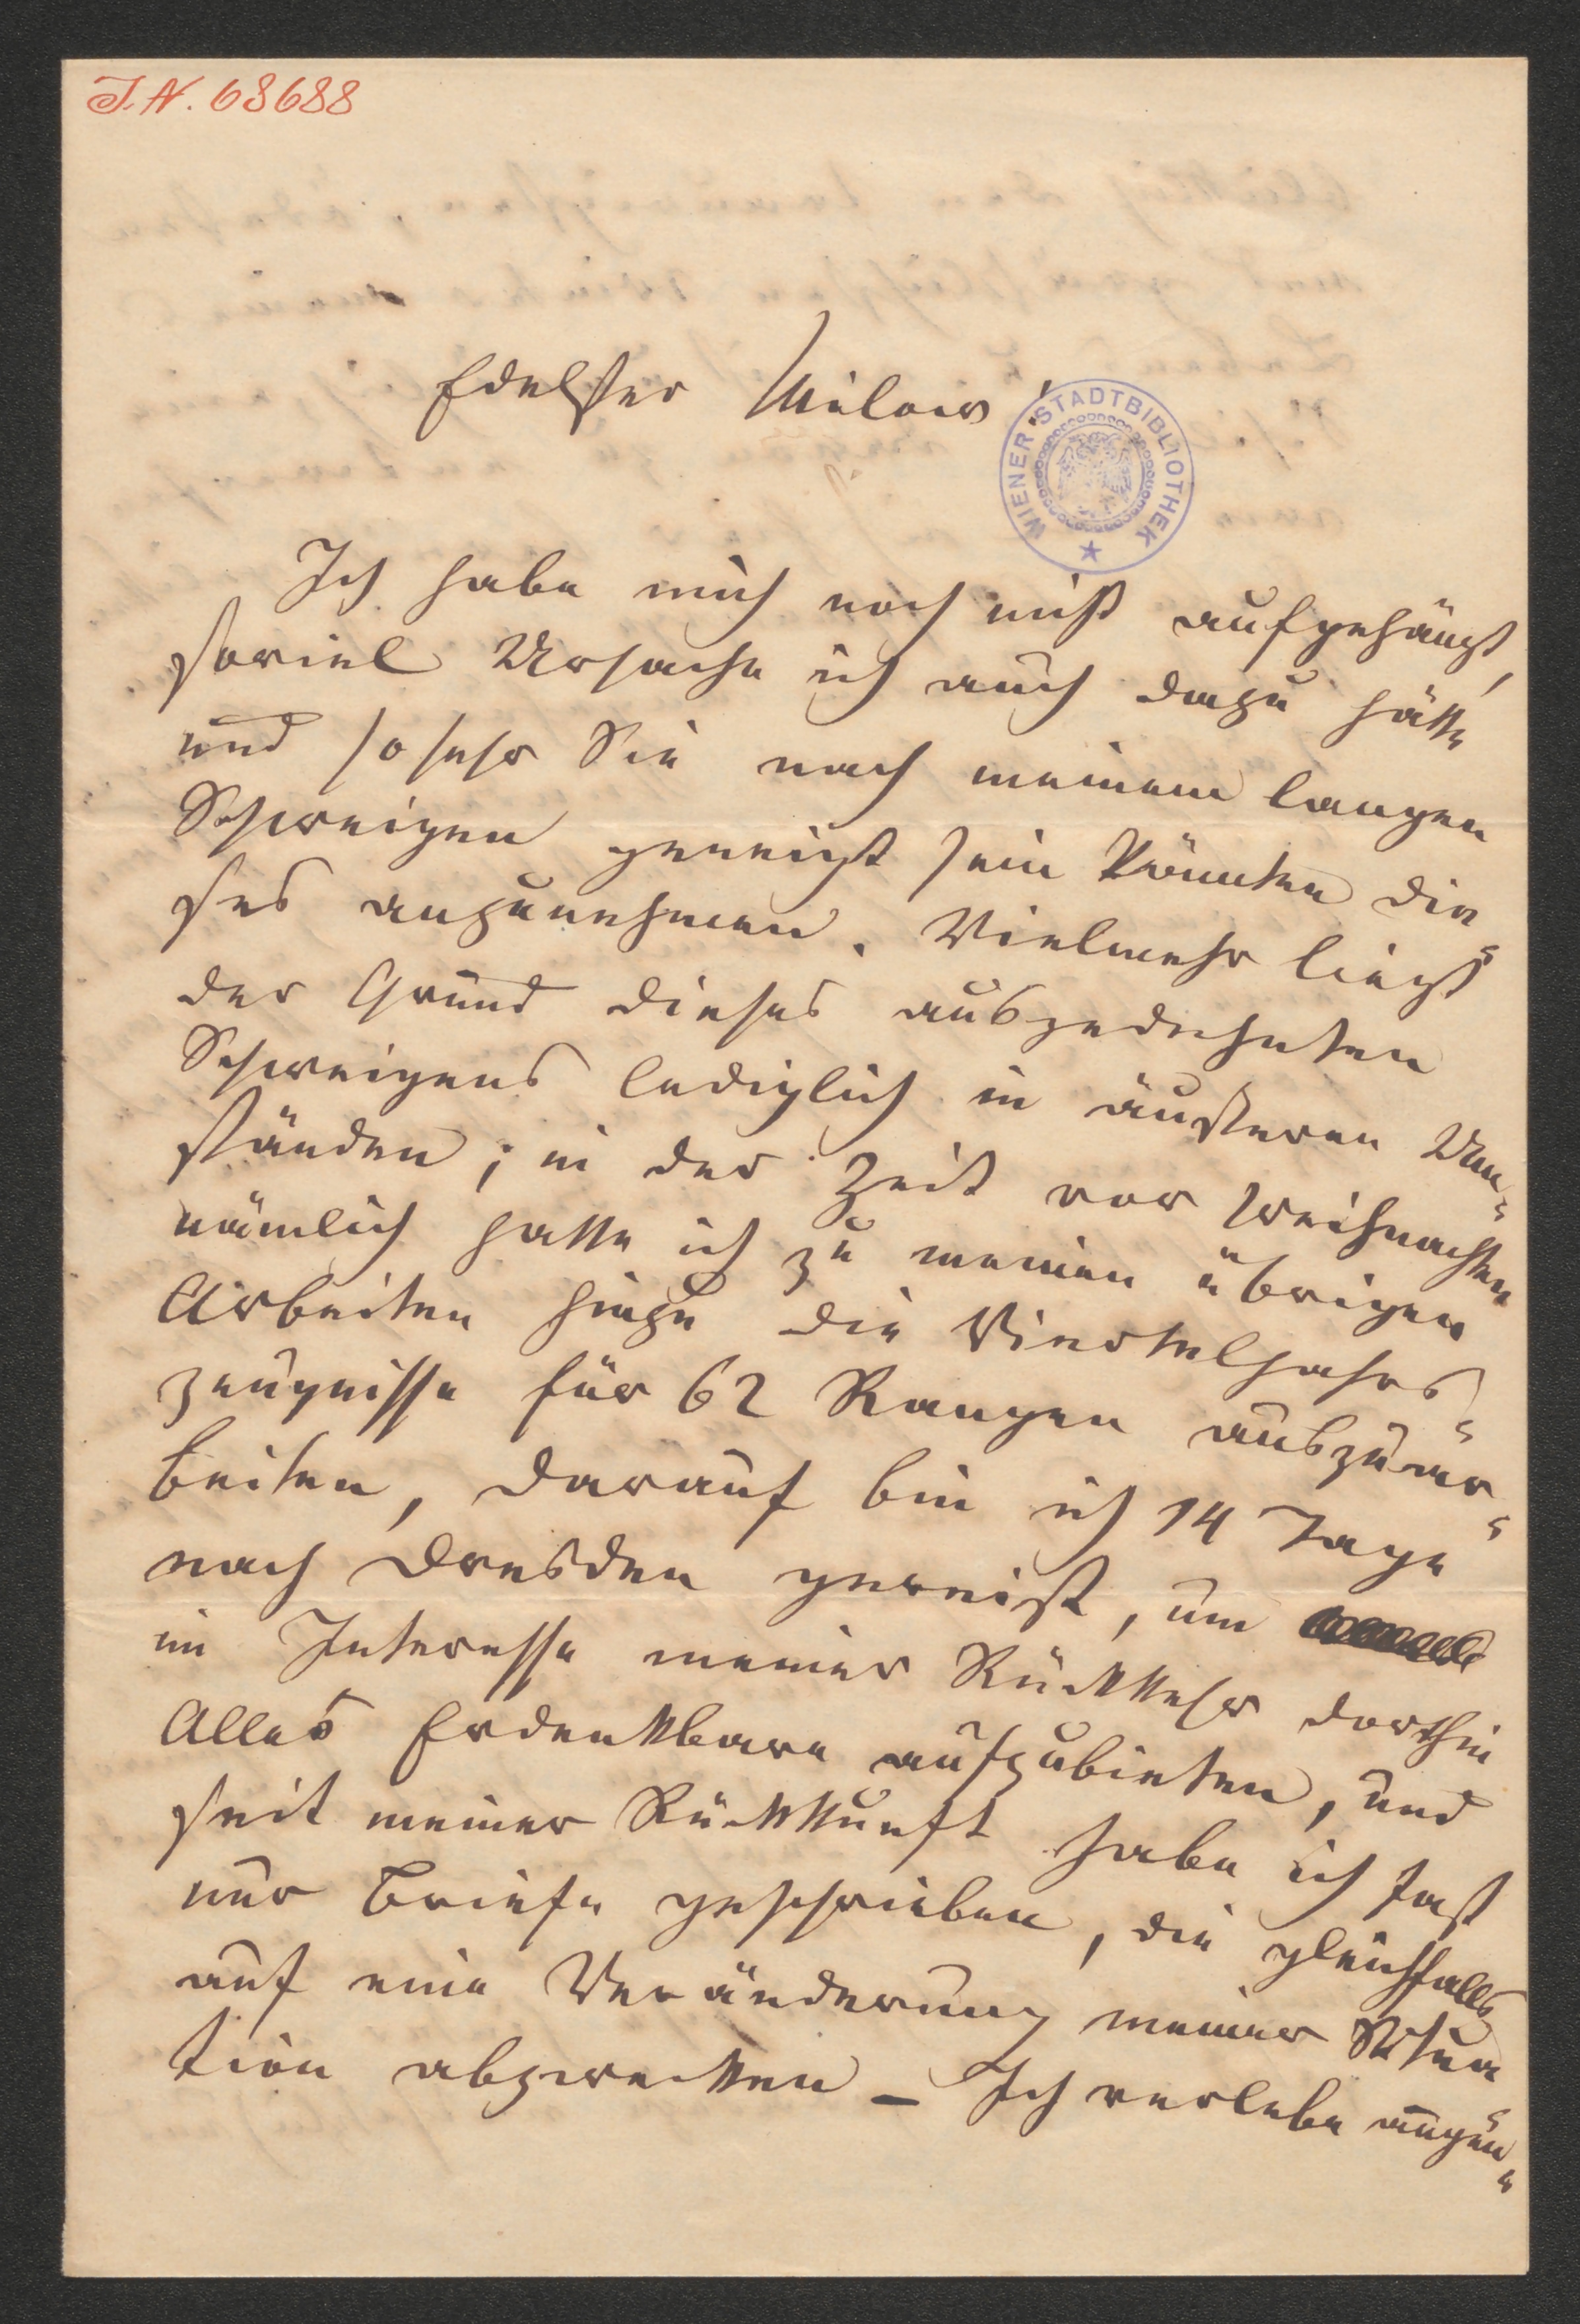 J. N. 68688
Edelster Milow!
WIENER STADTBIBLIOTHEK
Ich habe mich noch nicht aufgehängt,
soviel Ursache ich auch dazu hätte
und so sehr Sie nach meinem langen
Schweigen geneigt sein könnten die-
ses anzunehmen. Vielmehr liegt
der Grund dieses ausgedehnten
Schweigens lediglich in äußeren Um-
ständen; in der Zeit vor Weihnachten
nämlich hatte ich zu meinen übrigen
Arbeiten hinzu die Vierteljahrs-
zeugnisse für 62 Rangen auszuar-
beiten, darauf bin ich 14 Tage
nach Dresden gereist, um
im Interesse meiner Rückkehr dorthin
Alles Erdenkbare aufzubieten, und
seit meiner Rückkunft habe ich fast
nur Briefe geschrieben, die gleichfalls
auf eine Veränderung meiner Situa-
tion abzwecken – Ich verlebe augen-